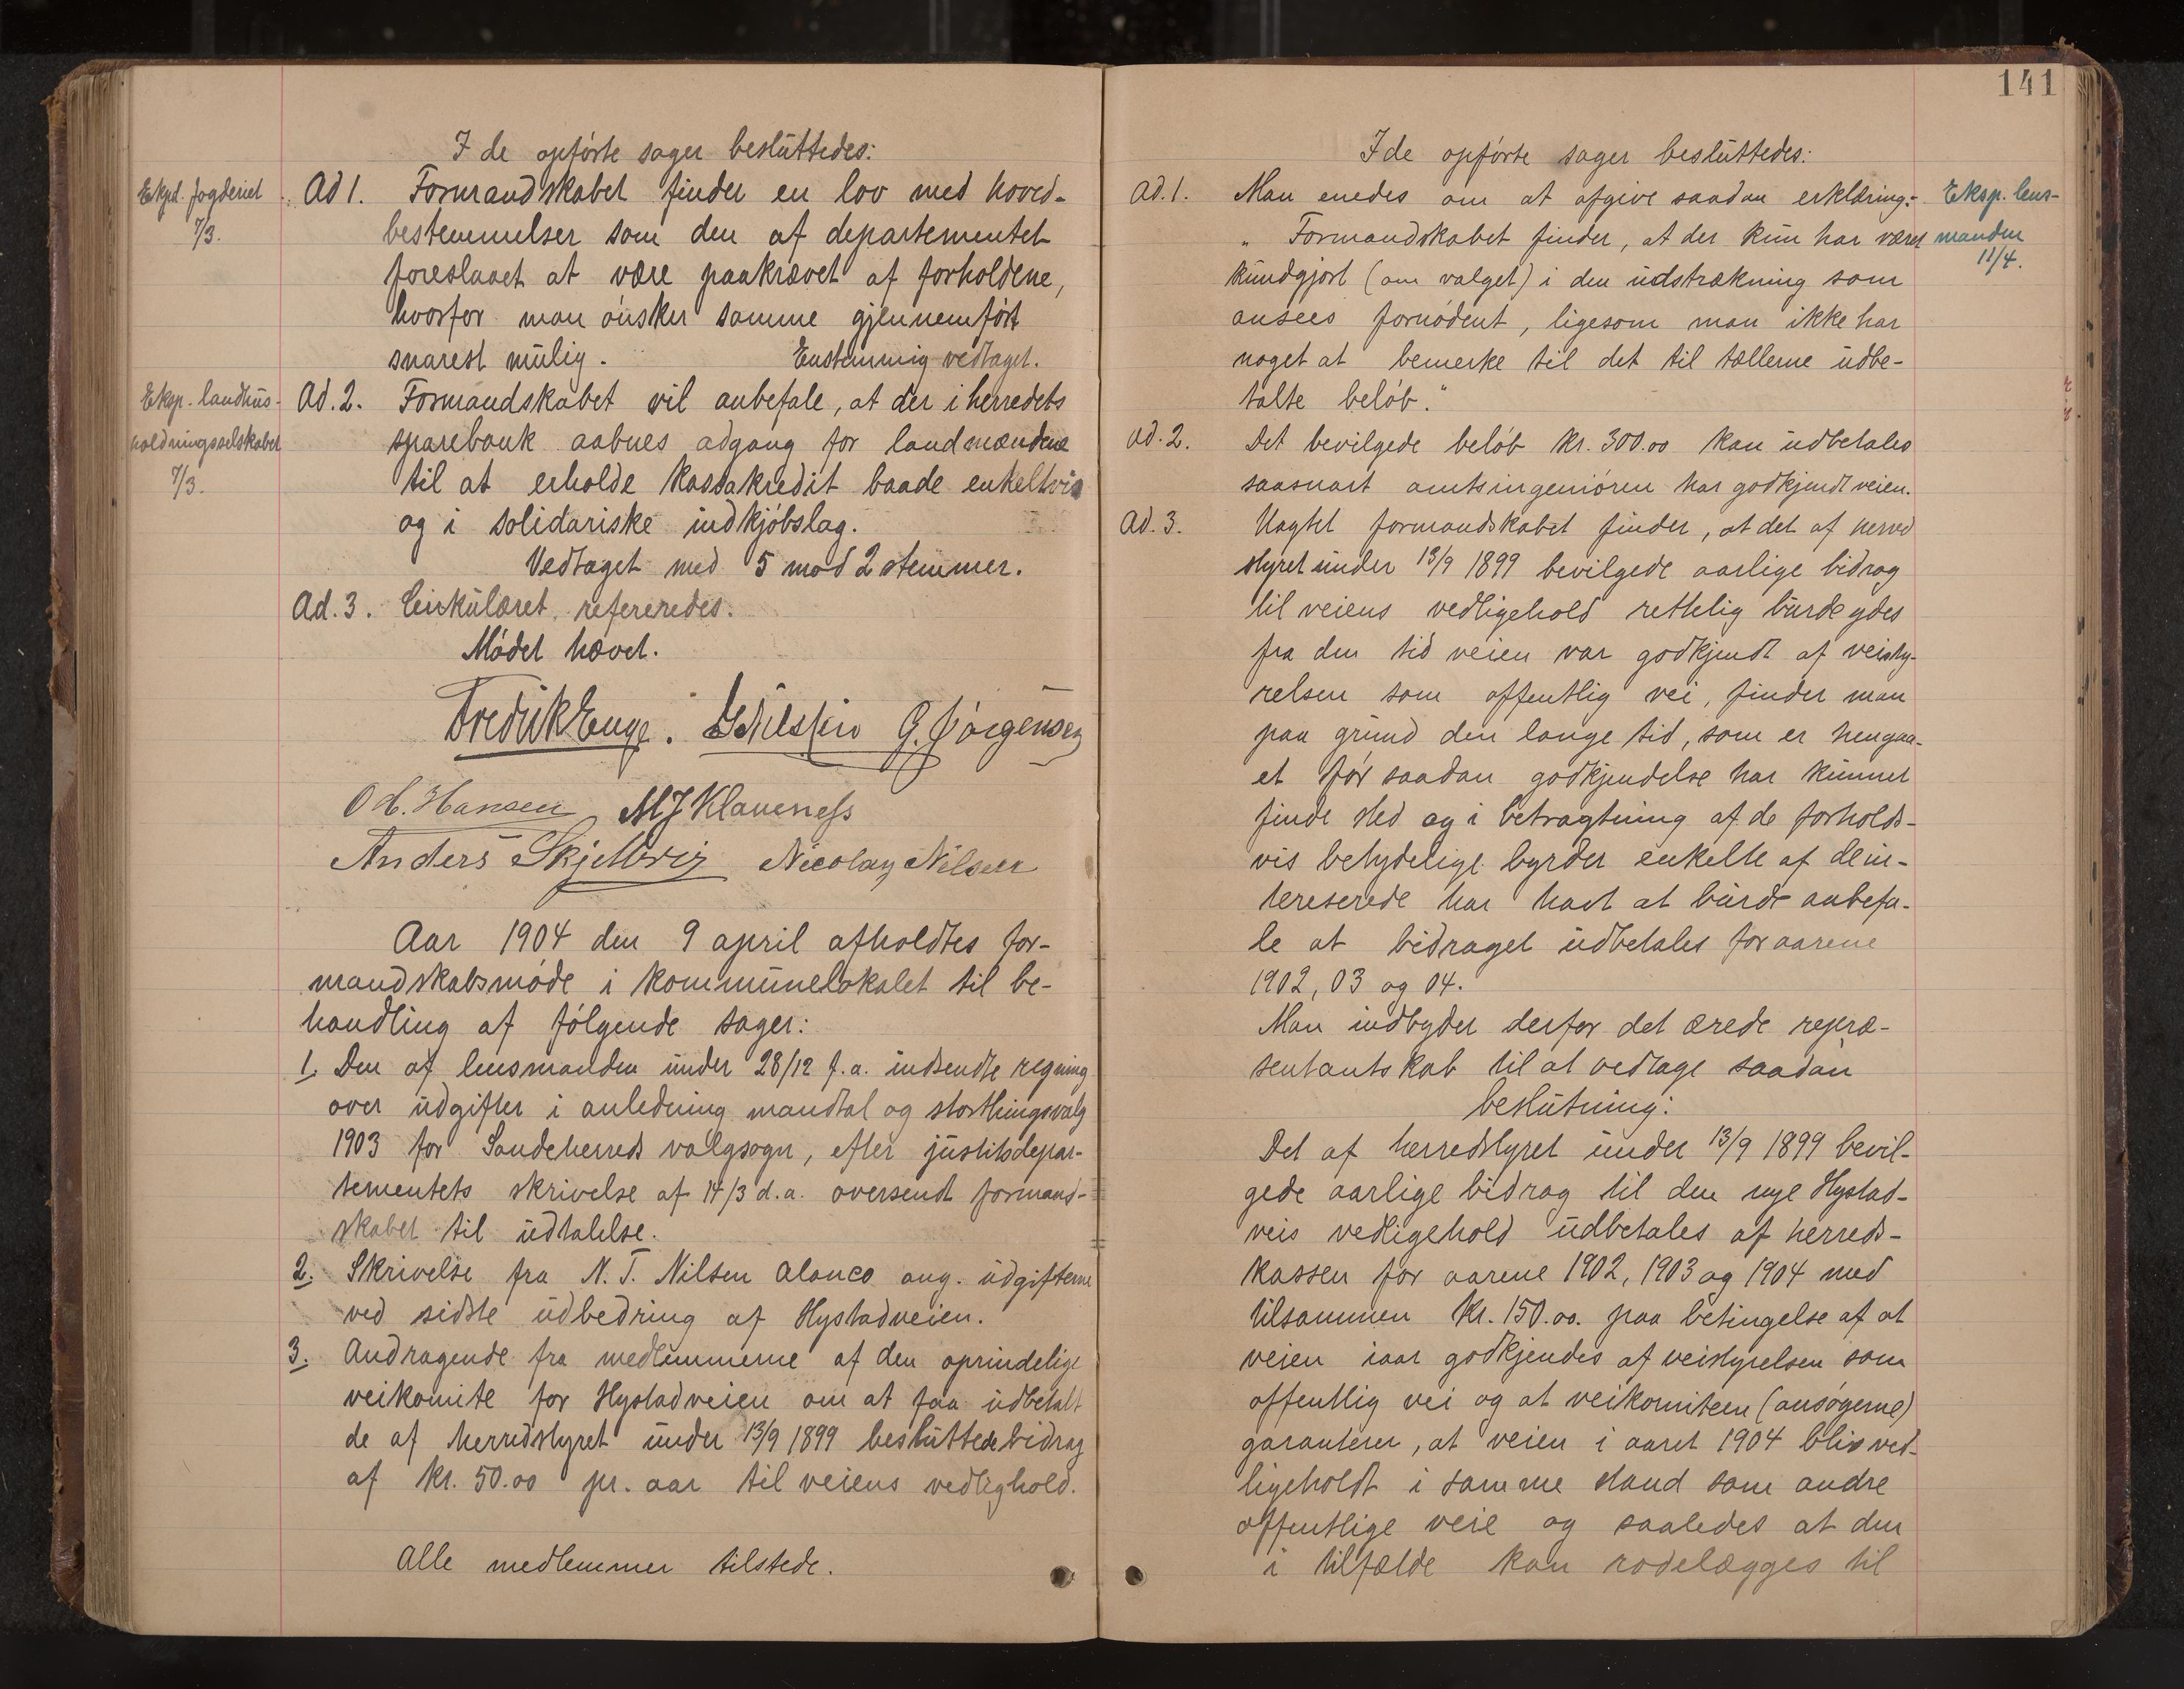 I de opførte sager besluttedes:
Ekpd. fogderiet
7/3.
Ad 1. Formandskabet finder en lov med hoved-
bestemmelser som den af departementet
foreslaaet at være paakrævet af forholdene,
hvorfor man ønsker samme gjennemført
snarest mulig. Enstemmig vedtaget.
Eksp. landhus-
holdningsselskabet
7/3.
Ad. 2. Formandskabet vil anbefale, at der i herredets
sparebank aabnes adgang for landmændene
til at erholde kassakredit baade enkeltvis
og i solidariske indkjøbslag.
Vedtaget med 5 mod 2 stemmer.
Ad. 3. Cirkulæret refereredes.
Mødet hævet.
Fredrik Enge. G. Jørgensen
O H. Hansen MJ Klaveness
Anders Skjelbrig Nicolay Nilsen
Aar 1904 den 9 april afholdtes for-
mandskabsmøde i kommunelokalet til be-
handling af følgende sager:
1. Den af lensmanden under 28/12 f.a. indsendte regning
over udgifter i anledning mandtal og storthingsvalg
1903 for Sandeherreds valgsogn, efter justitsdepar-
tementets skrivelse af 14/3 d.a. oversendt formand-
skabet til udtalelse.
2. Skrivelse fra N. T. Nilsen Alanco ang. udgifterne
ved sidste udbedring af Hystadveien.
3. Andragende fra medlemmerne af den oprindelige
veikomite for Hystadveien om at faa udbetalt
de af herredstyret under 13/9 1899 besluttede bidrag
af kr. 50.00 pr. aar til veiens vedlighold.
Alle medlemmer tilstede.
141
I de opførte sager besluttedes:
Ad. 1. Man enedes om at afgive saadan erklæring:-
" Formandskabet finder, at der kun har været
kundgjort (om valget) i den udstrækning som
ansees fornødent, ligesom man ikke har
noget at bemerke til det til tællerne udbe-
talte beløb."
Eksp. lens-
manden
11/4.
Ad. 2. Det bevilgede beløb kr. 300.00 kan udbetales
saasnart amtsingeniøren har godkjendt veien.
Ad. 3. Uagtet formandskabet finder, at det af herred
styret under 13/9 1899 bevilgede aarlige bidrag
til veiens vedligehold rettelig burde ydes
fra den tid veien var godkjendt af veisty-
relsen som offentlig vei, finder man
paa grund den lange tid, som er hengaa-
et før saadan godkjendelse har kunnet
finde sted og i betragtning af de forholds-
vis betydelige byrder enkelte af de in-
tereserede har havt at burde anbefa-
le at bidraget udbetales for aarene
1902, 03 og 04.
Man indbyder derfor det ærede repræ-
sentantskab til at vedtage saadan
beslutning:
Det af herredstyret under 13/9 1899 bevil-
gede aarlige bidrag til den nye Hystad-
veis vedligehold udbetales af herreds-
kassen for aarene 1902, 1903 og 1904 med
tilsammen kr. 150.00. paa betingelse af at
veien iaar godkjendes af veistyrelsen som
offentlig vei og at veikomiteen (ansøgerne)
garanterer, at veien i aaret 1904 blir ved-
ligeholdt i samme stand som andre
offentlige veie og saaledes at den
i tilfælde kan rodelægges til